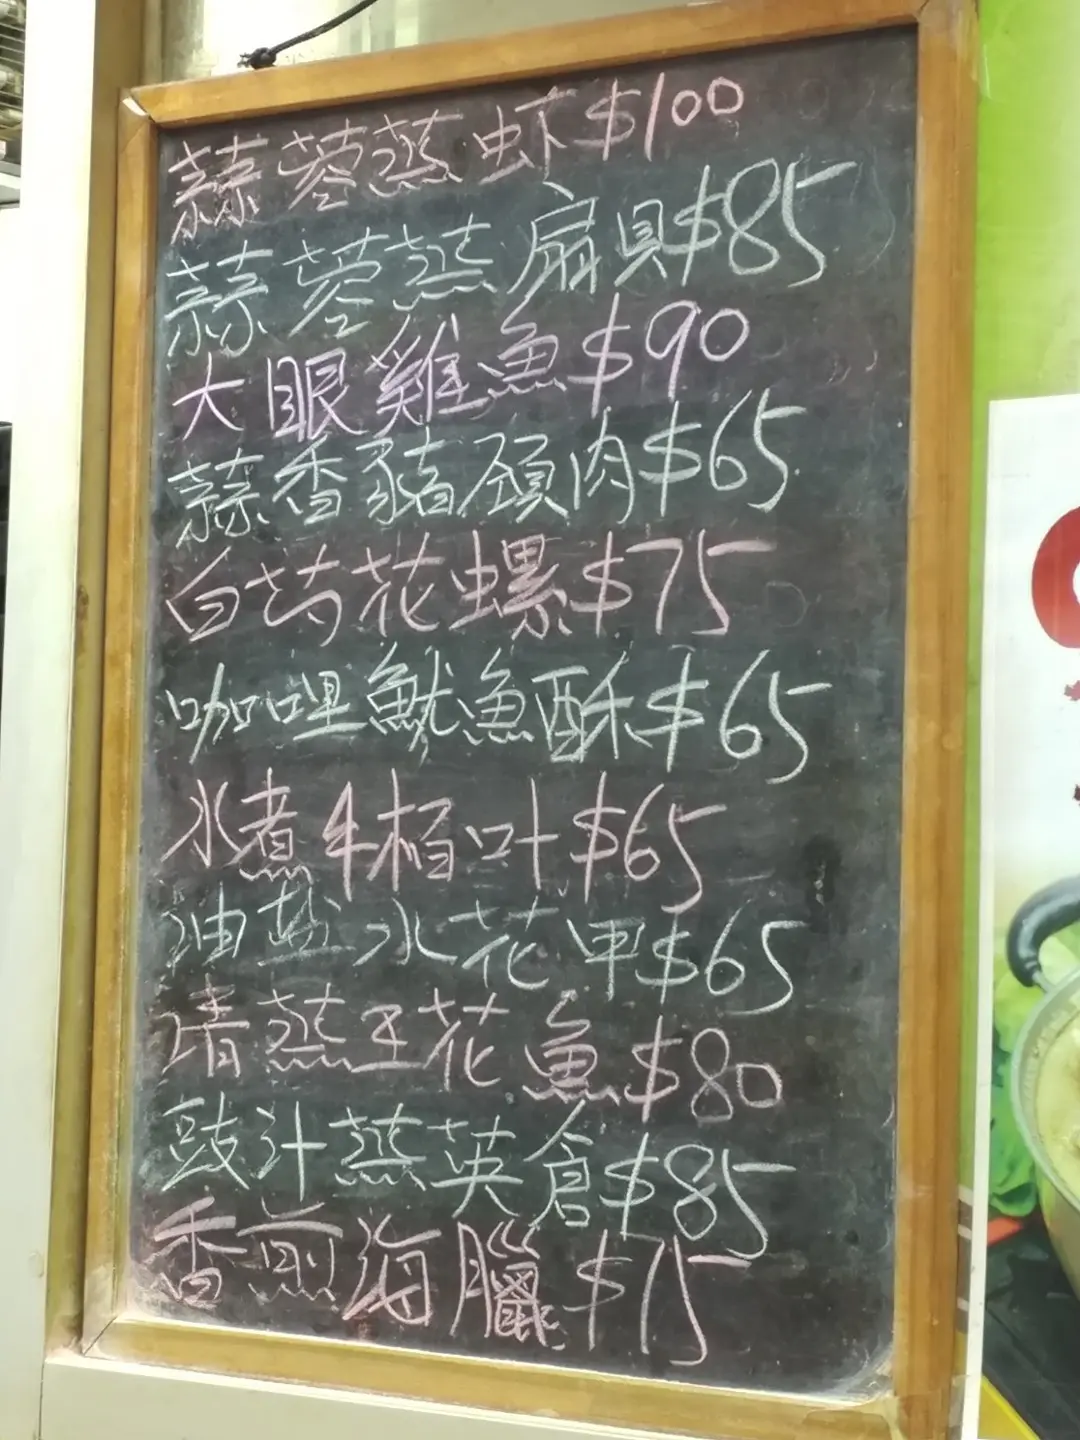 蒜蓉蒸虾$100
蒜蓉蒸扇貝$85
大眼雞魚$90
蒜香豬頸肉$65
白灼花螺$75
咖哩魷魚酥$65
水煮牛栢叶$65
油盐水花甲$65
清蒸王花魚$80
豉汁蒸英倉$85
香煎海臘$75